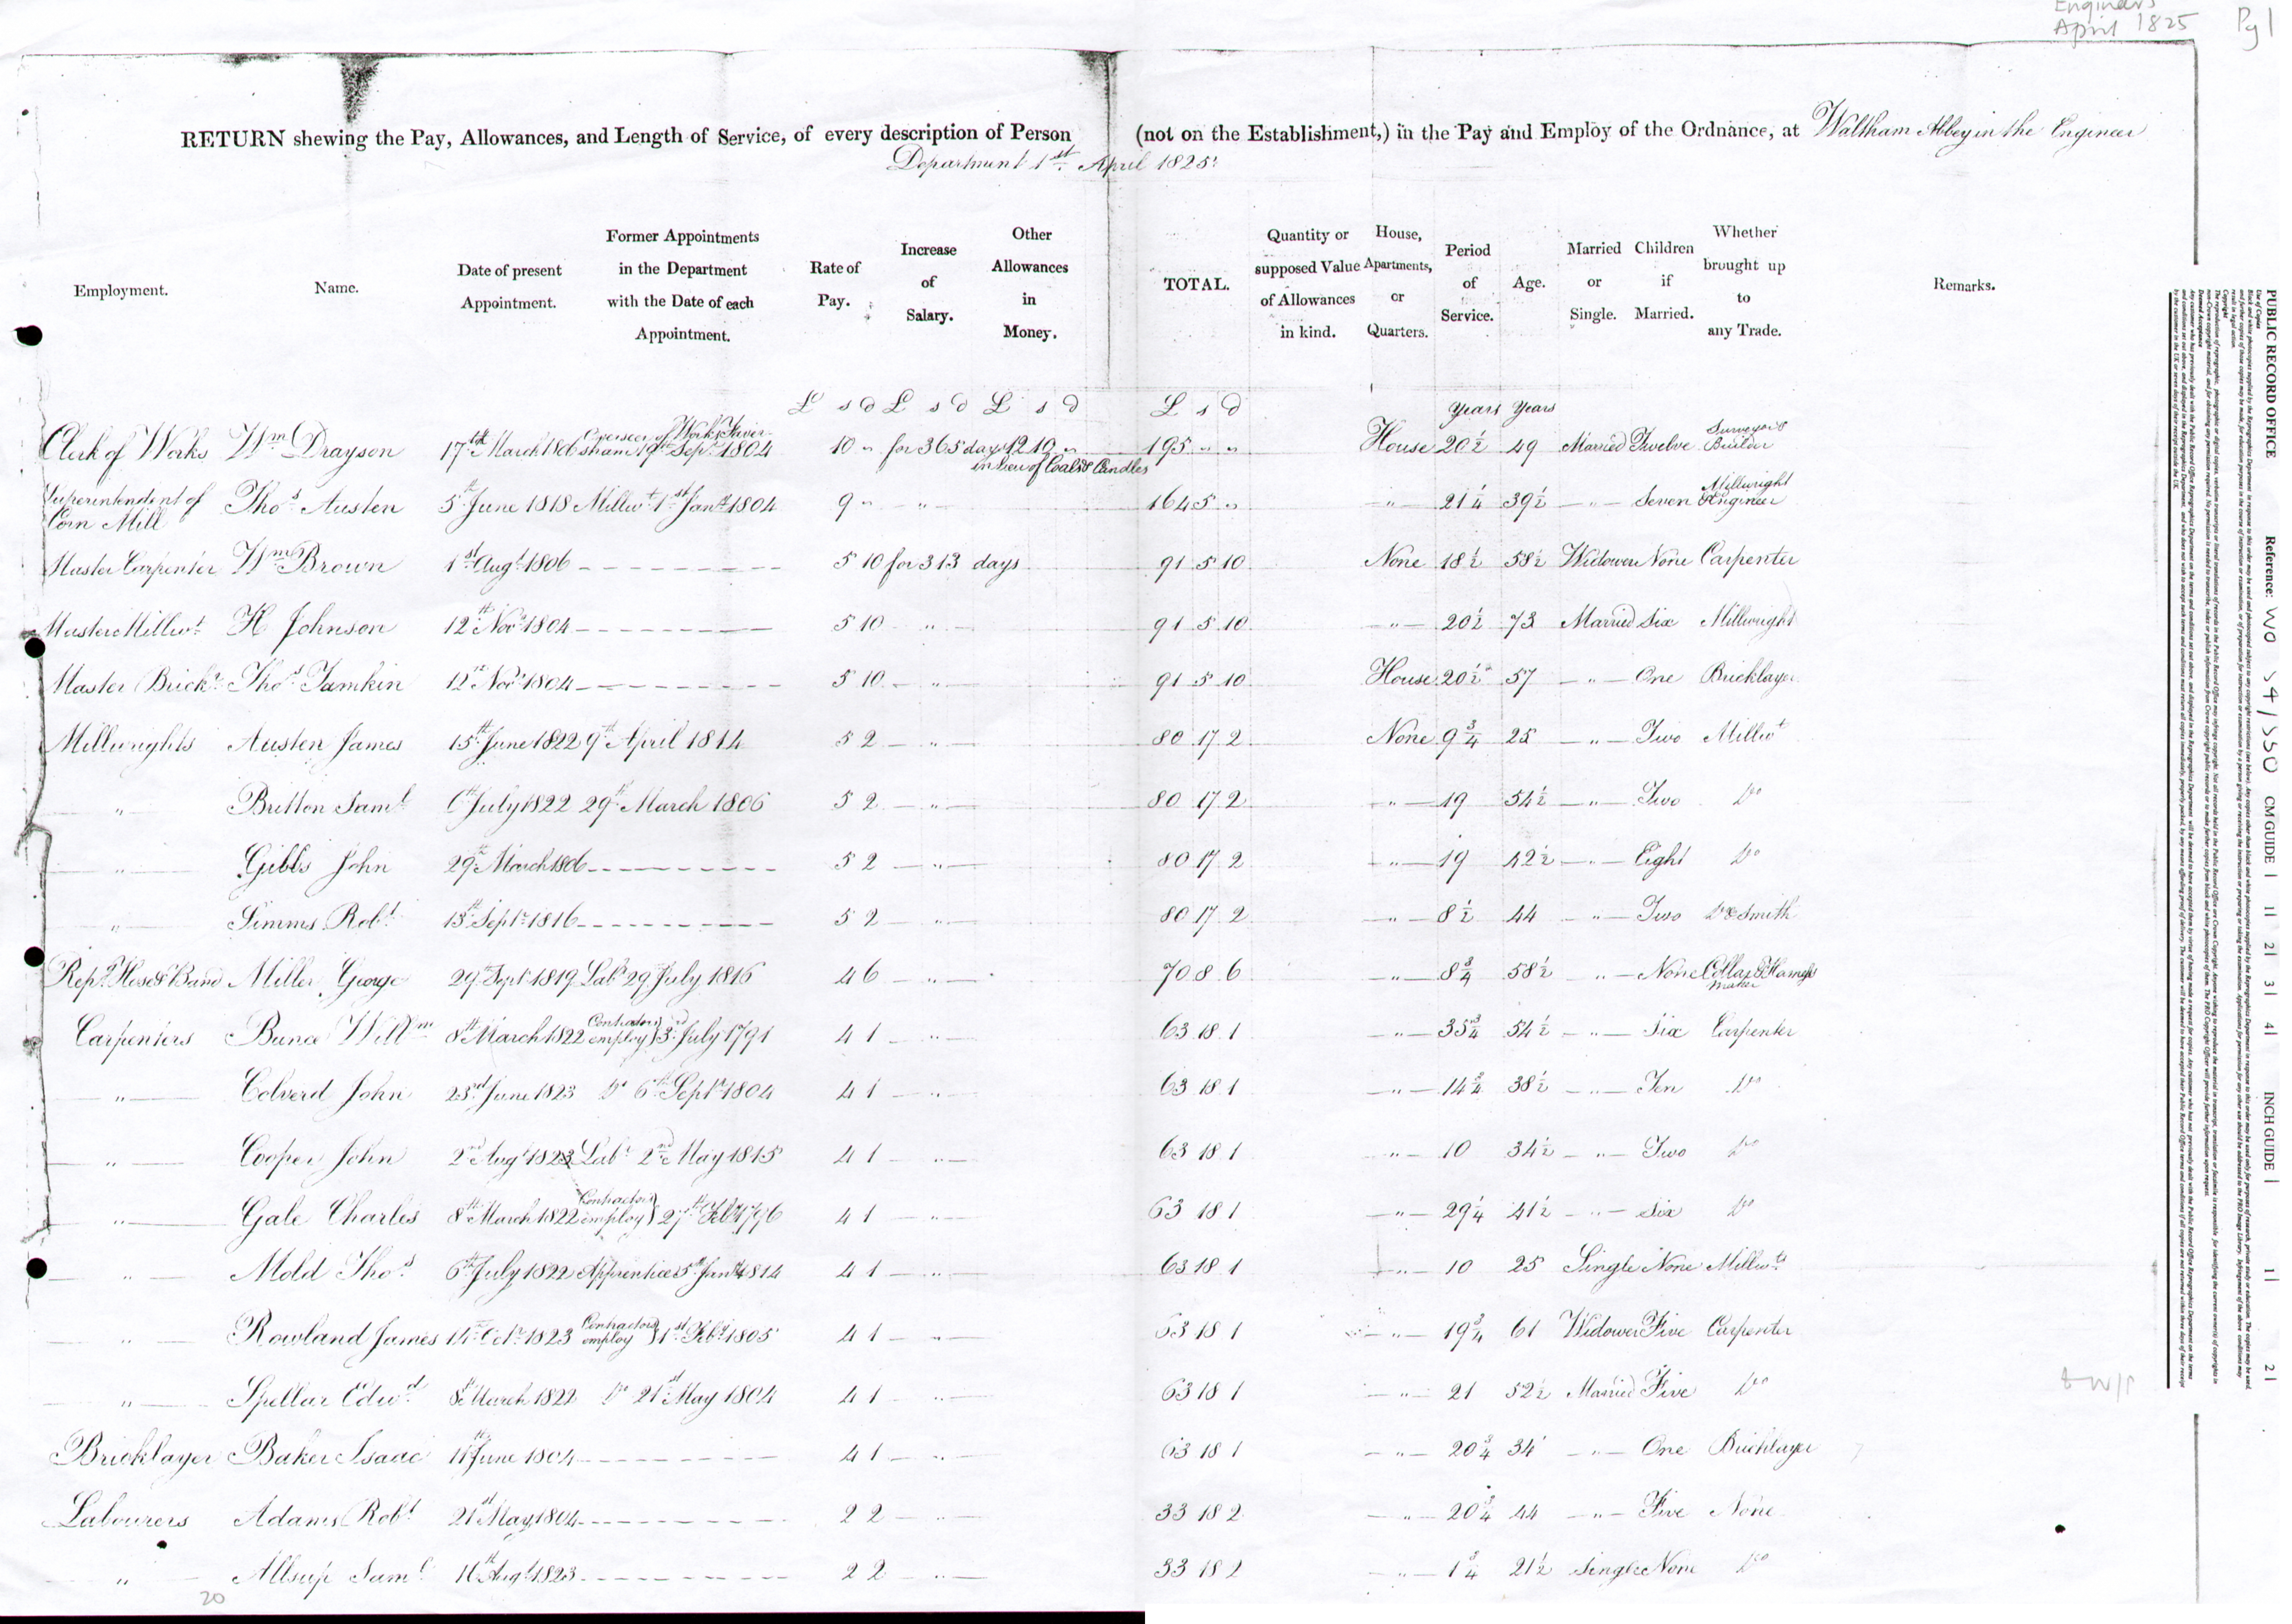 Engineers
April 1825
Pg 1
RETURN shewing the Pay, Allowances, and Length of Service, of every description of Person (not on the Establishment,) in the Pay and Employ of the Ordnance, at Waltham Abbey in the Engineer
Department 1st April 1825
Employment. Name. Date of present Appointment. Former Appointments in the Department with the Date of each Appointment. Rate of Pay. Increase of Salary. Other Allowances in Money. TOTAL. Quantity or supposed Value of Allowances in kind. House, Apartments, or Quarters. Period of Service. Age. Married or Single. Children if Married. Whether brought up to any Trade. Remarks.
£ s d £ s d £ s d £ s d Years Years
Clerk of Works Wm Drayson 17th March 1806 Overseer of Works Faversham 19th Sepr 1804 10 " for 365 days 12 10 " in lieu of Coals & Candles 195 " " House 20½ 49 Married Twelve Surveyor & Builder
Superintendent of Corn Mill Thos Austen 5th June 1818 Millwt 1st Jany 1804 9 " " 164 5 " " 21¼ 39½ " Seven Millwright & Engineer
Master Carpenter Wm Brown 1st Augt 1806 5 10 for 313 days 91 5 10 None 18½ 58½ Widower None Carpenter
Master Millwt H Johnson 12th Novr 1804 5 10 " 91 5 10 " 20½ 73 Married Six Millwright
Master Brickr Thos Tamkin 12th Novr 1804 5 10 " 91 5 10 House 20½ 57 " One Bricklayer
Millwrights Austen James 15th June 1822 9th April 1814 5 2 " 80 17 2 None 9¾ 25 " Two Millwt
" Britton Saml 6th July 1822 29th March 1806 5 2 " 80 17 2 " 19 54½ " Two Do
" Gibbs John 29th March 1806 5 2 " 80 17 2 " 19 42½ " Eight Do
" Simms Robt 13th Septr 1816 5 2 " 80 17 2 " 8½ 44 " Two Do & Smith
Repg Hose & Band Miller George 29th Sept 1819 Labr 29 July 1816 4 6 " 70 8 6 " 8¾ 58½ " None Collar & Harness maker
Carpenters Bunce Willm 8th March 1822 Contractors employ } 3rd July 1791 4 1 " 63 18 1 " 35¾ 54½ " Six Carpenter
" Colverd John 23rd June 1823 Do 6th Septr 1804 4 1 " 63 18 1 " 14¾ 38½ " Ten Do
" Cooper John 2nd Augt 1823 Labr 2nd May 1815 4 1 " 63 18 1 " 10 34½ " Two Do
" Gale Charles 8th March 1822 Contractors employ } 27th Feby 1796 4 1 " 63 18 1 " 29¼ 41½ " Six Do
" Mold Thos 6th July 1822 Apprentice 5th Jany 1814 4 1 " 63 18 1 " 10 25 Single None Millwt
" Rowland James 14th Octr 1823 Contractors employ } 1st Feby 1805 4 1 " 63 18 1 " 19¾ 61 Widower Five Carpenter
" Spellar Edwd 8th March 1822 Do 21st May 1804 4 1 " 63 18 1 " 21 52½ Married Five Do
Bricklayer Baker Isaac 11th June 1804 4 1 " 63 18 1 " 20¾ 34 " One Bricklayer
Labourers Adams Robt 21st May 1804 2 2 " 33 18 2 " 20¾ 44 " Five None
" Allsup Saml 16th Augt 1823 2 2 " 33 18 2 " 1¾ 21½ Single None Do
20
PUBLIC RECORD OFFICE Reference: WO 54/550 CM GUIDE 1 2 3 4 INCH GUIDE 1 2